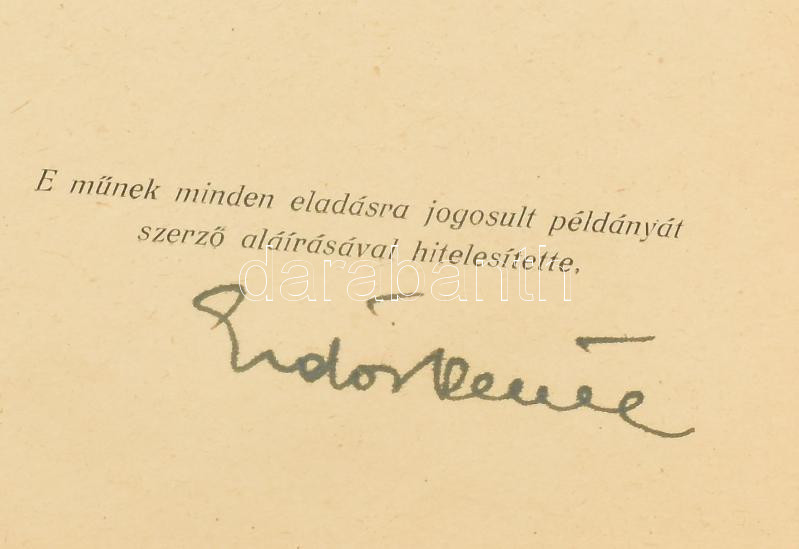 E műnek minden eladásra jogosult példányát
szerző aláírásával hitelesítette.
darabanth
Erdős Renée